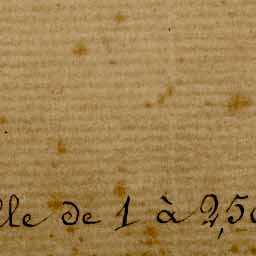 lle de 1 à 2,50